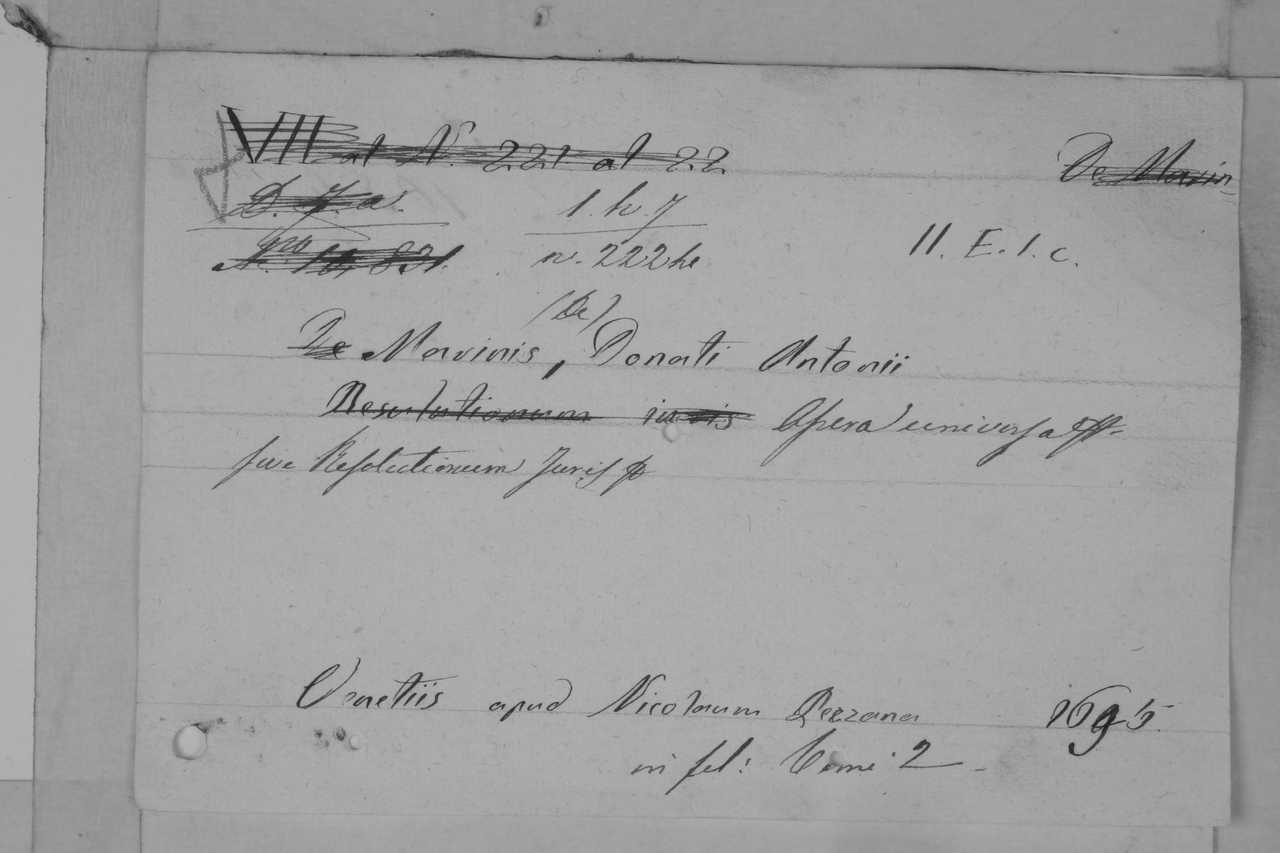 VII at N. 221 at 22 De Marin
D. 7. a. 1. h. 7 11. E. 1. c.
n. 222 he
(De)
De Marinis, Donati Antonii
Resolutionum iuris Opera universa
sive Resolutionum Juris
Venetiis apud Nicolaum Pezzana 1695.
in fol: Tomi 2